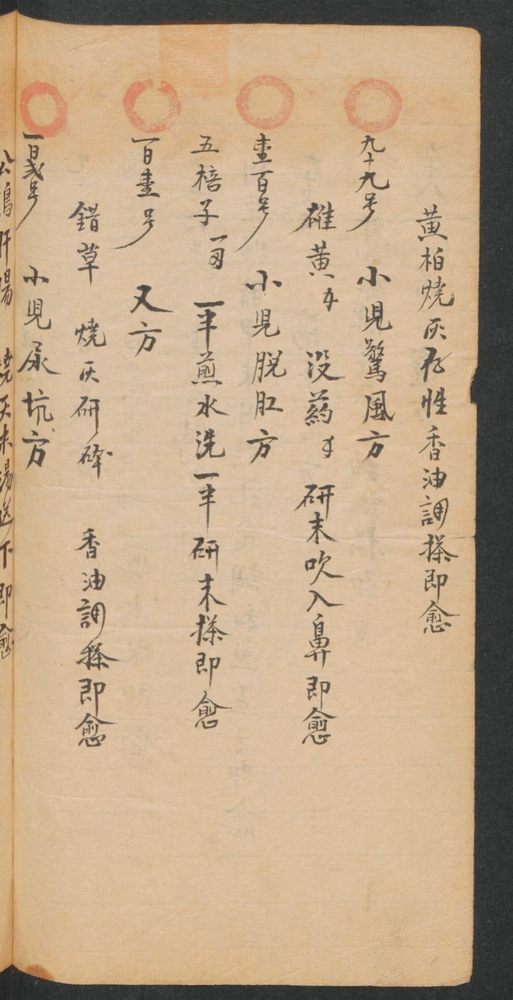 黄柏燒灰存性香油調搽即愈
九十九号 小児驚風方
雄黄 没葯 研末吹入鼻即愈
壹百号 小児脱肛方
五棓子 一半煎水洗一半研末搽即愈
一百壹号 又方
錯草 燒灰研碎 香油調搽即愈
一百弍号 小児尿坑方
公鷄肝腸 燒灰末湯送下即愈